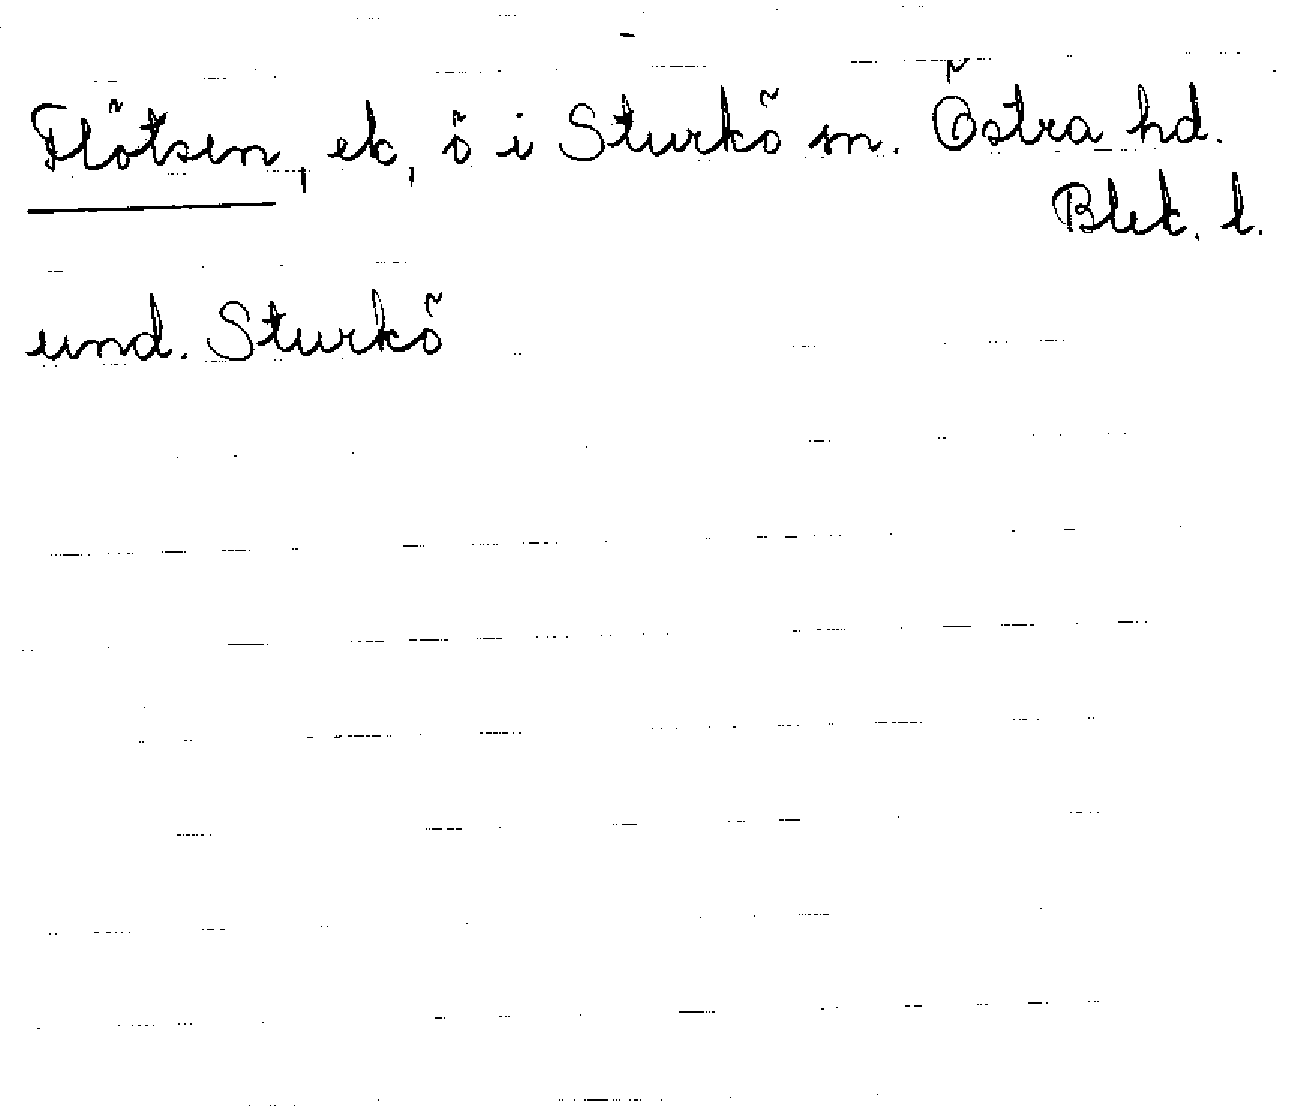 Flötsen, ek, ö i Sturkö sn. Östra hd.
Blek. l.
und. Sturkö